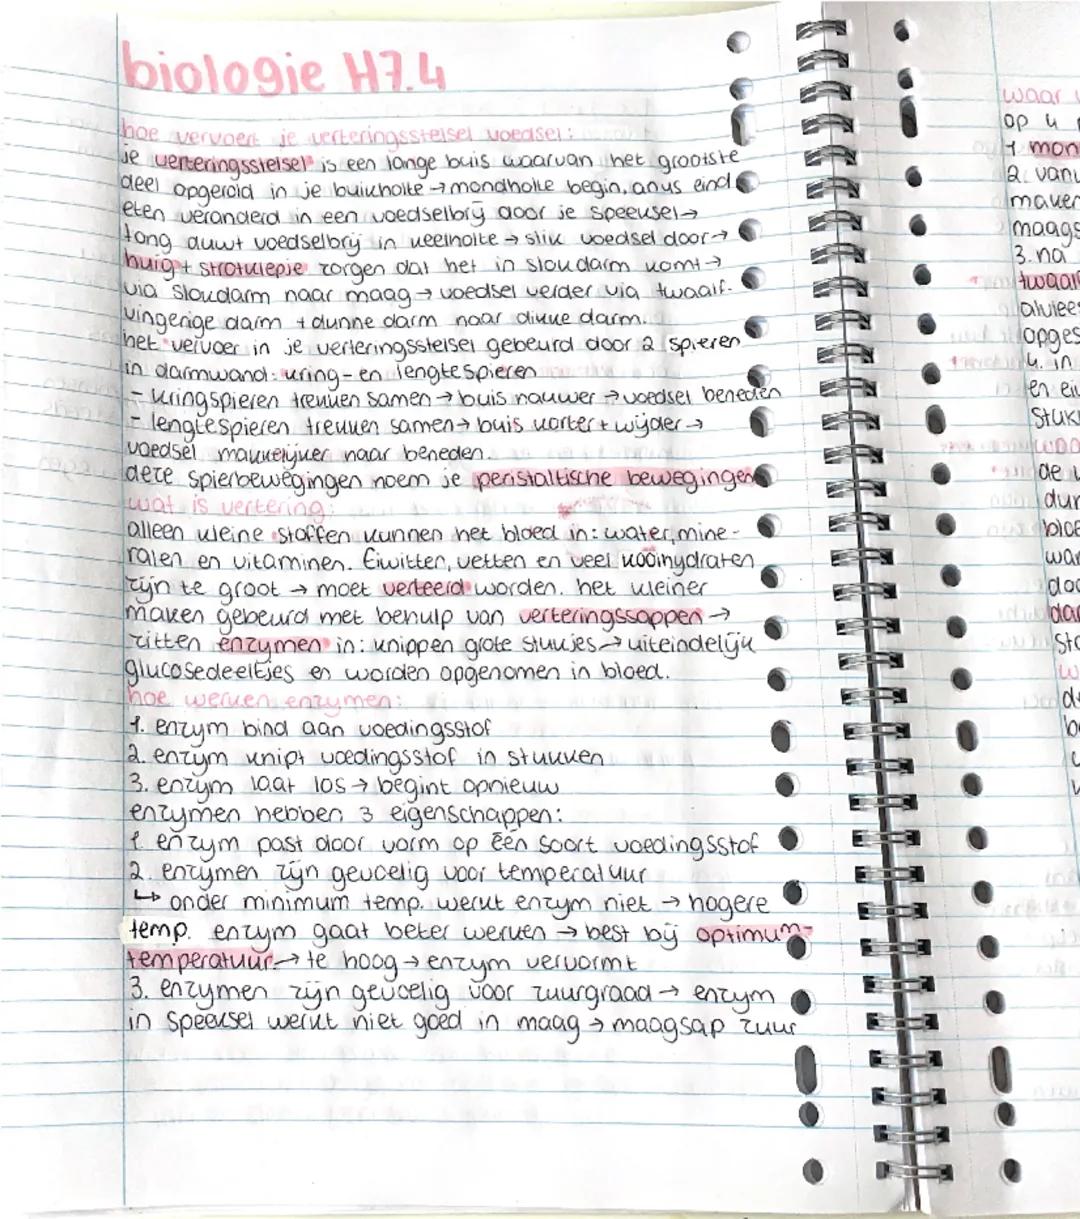 biologie H7.4
hoe vervoert je verteringsstelsel voedsel:
je verteringsstelsel is een lange buis waarvan het grootste
deel opgerold in je buikholte → mondholte begin, anus eind
eten veranderd in een voedselbrij door je speeksel →
tong duwt voedselbrij in keelholte → slik voedsel door →
huig + strotklepje zorgen dat het in slokdarm komt →
via slokdarm naar maag → voedsel verder via twaalf-
vingerige darm + dunne darm naar dikke darm.
het vervoer in je verteringsstelsel gebeurd door 2 spieren
in darmwand: kring- en lengtespieren
- kringspieren trekken samen → buis nauwer → voedsel beneden
- lengtespieren trekken samen → buis korter + wijder →
voedsel makkelijker naar beneden.
deze spierbewegingen noem je peristaltische bewegingen
wat is vertering:
alleen kleine stoffen kunnen het bloed in: water, mine-
ralen en vitaminen. Eiwitten, vetten en veel koolhydraten
zijn te groot → moet verteerd worden. het kleiner
maken gebeurd met behulp van verteringssappen →
zitten enzymen in: knippen grote stukjes → uiteindelijk
glucosedeeltjes en worden opgenomen in bloed.
hoe werken enzymen:
1. enzym bind aan voedingsstof
2. enzym knipt voedingsstof in stukken
3. enzym laat los → begint opnieuw
enzymen hebben 3 eigenschappen:
1. enzym past door vorm op één soort voedingsstof
2. enzymen zijn gevoelig voor temperatuur
↳ onder minimum temp. werkt enzym niet → hogere
temp. enzym gaat beter werken → best bij optimum-
temperatuur → te hoog → enzym vervormt
3. enzymen zijn gevoelig voor zuurgraad → enzym
in speeksel werkt niet goed in maag → maagsap zuur
waar
op 4
1 mon
2. van
maken
maags
3. na
twaal
alvlees
opges
4. in
en ei
stuk
de
dun
bloe
wan
doo
dar